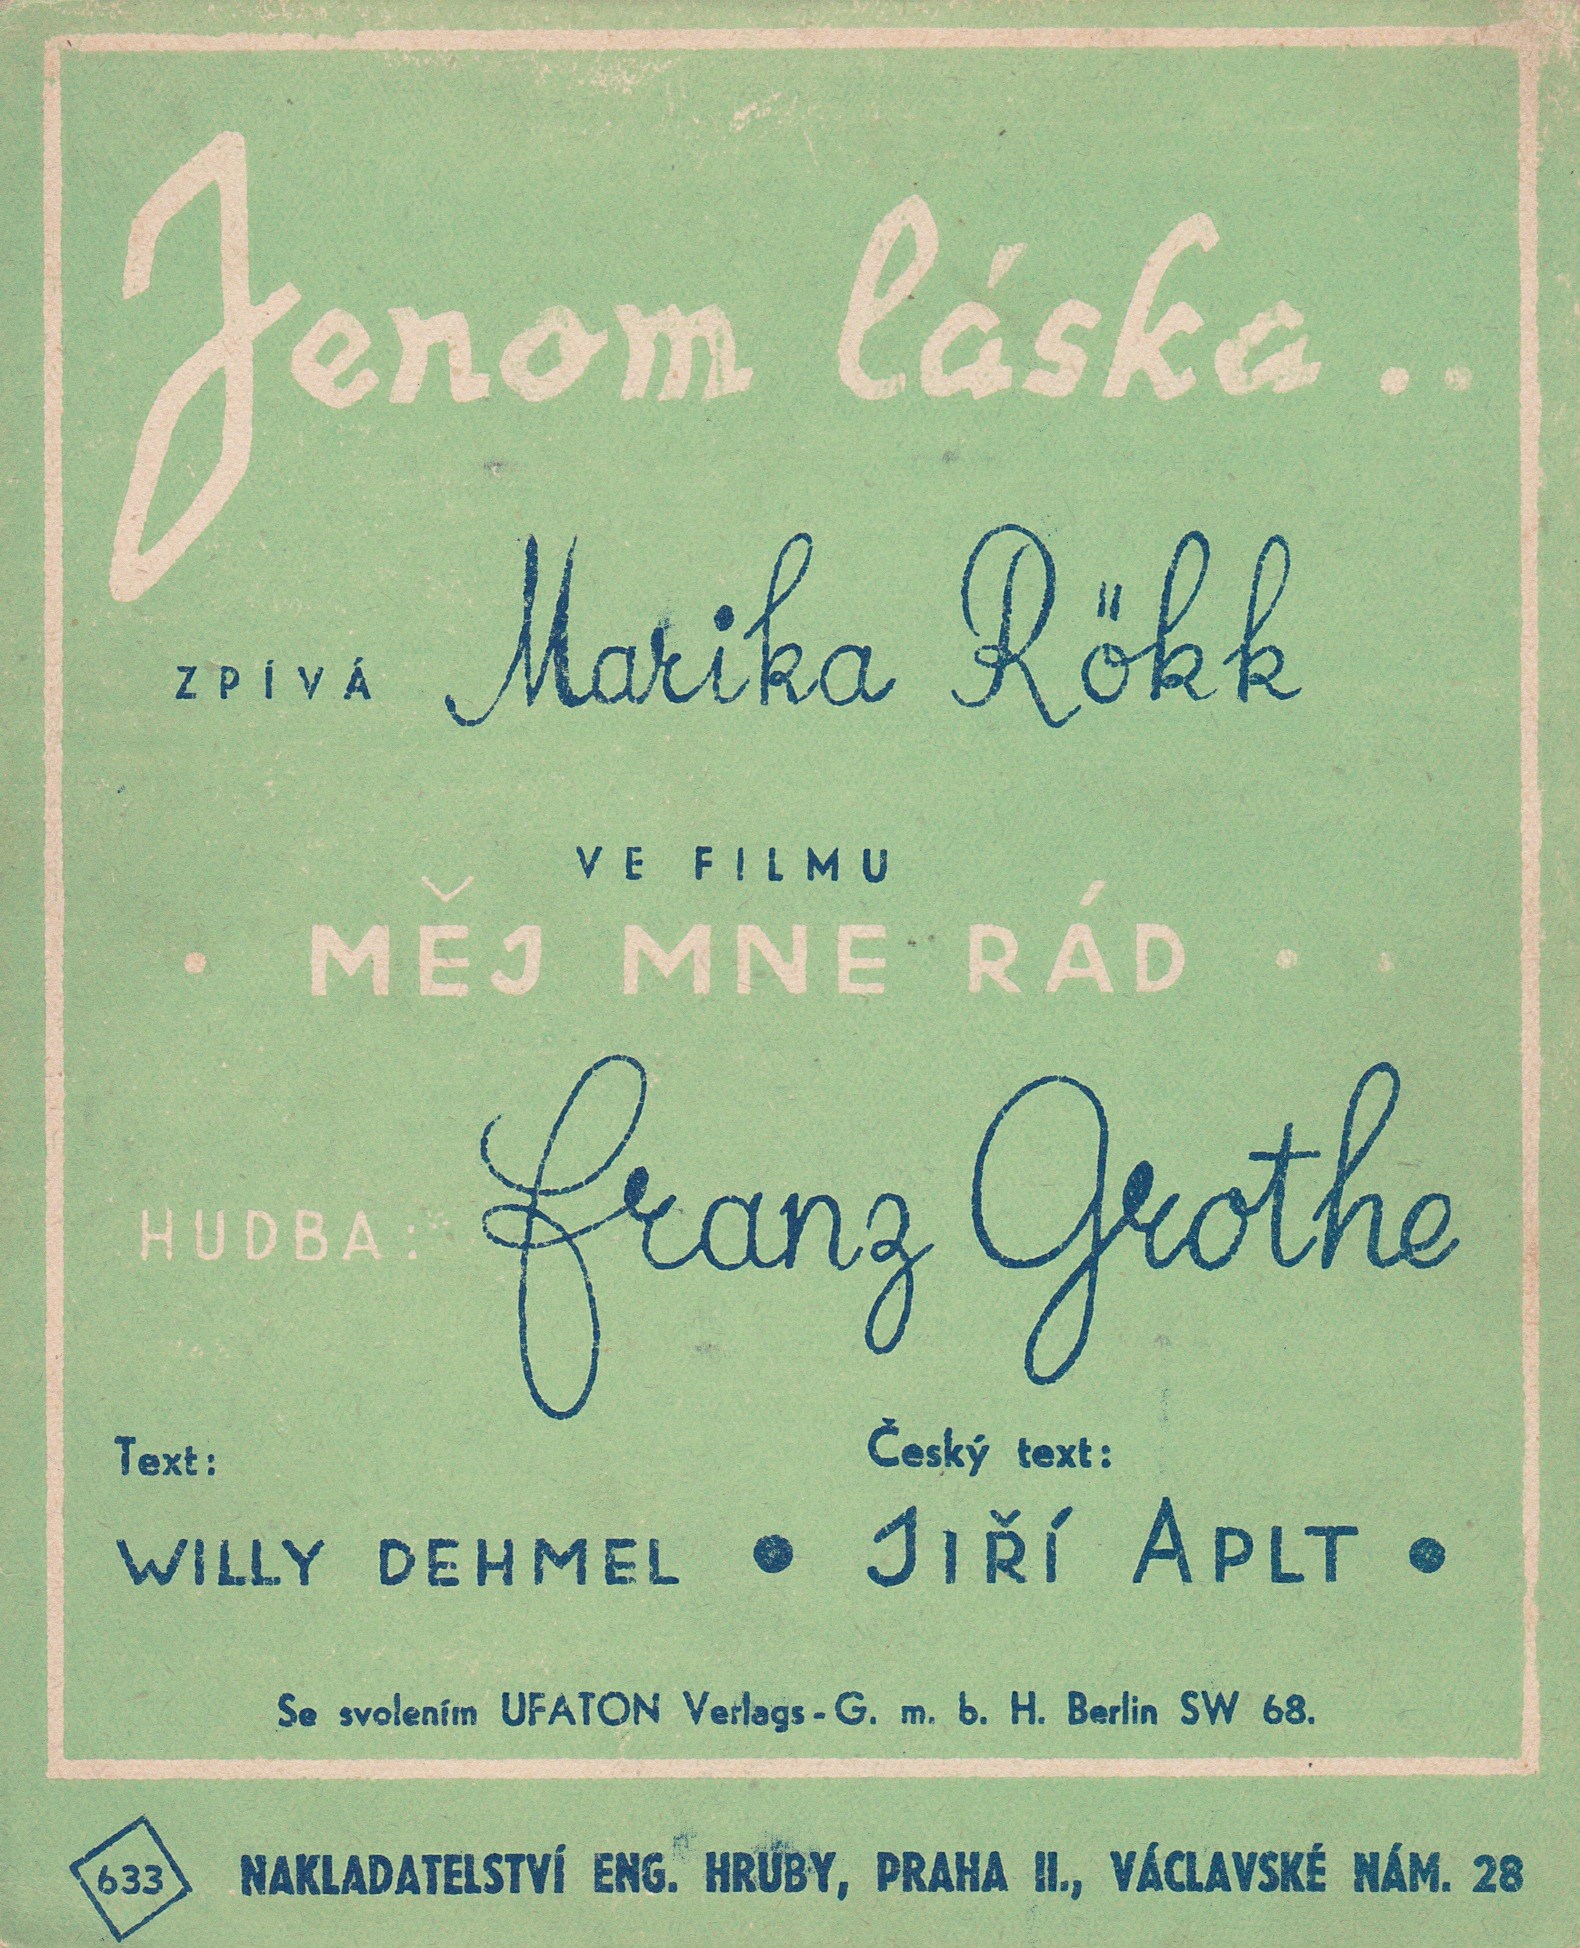 Jenom láska . .
ZPÍVÁ Marika Rökk
VE FILMU
. MĚJ MNE RÁD . .
HUDBA: Franz Grothe
Text: Český text:
WILLY DEHMEL • JIŘÍ APLT •
Se svolením UFATON Verlags-G. m. b. H. Berlin SW 68.
633 NAKLADATELSTVÍ ENG. HRUBY, PRAHA II., VÁCLAVSKÉ NÁM. 28